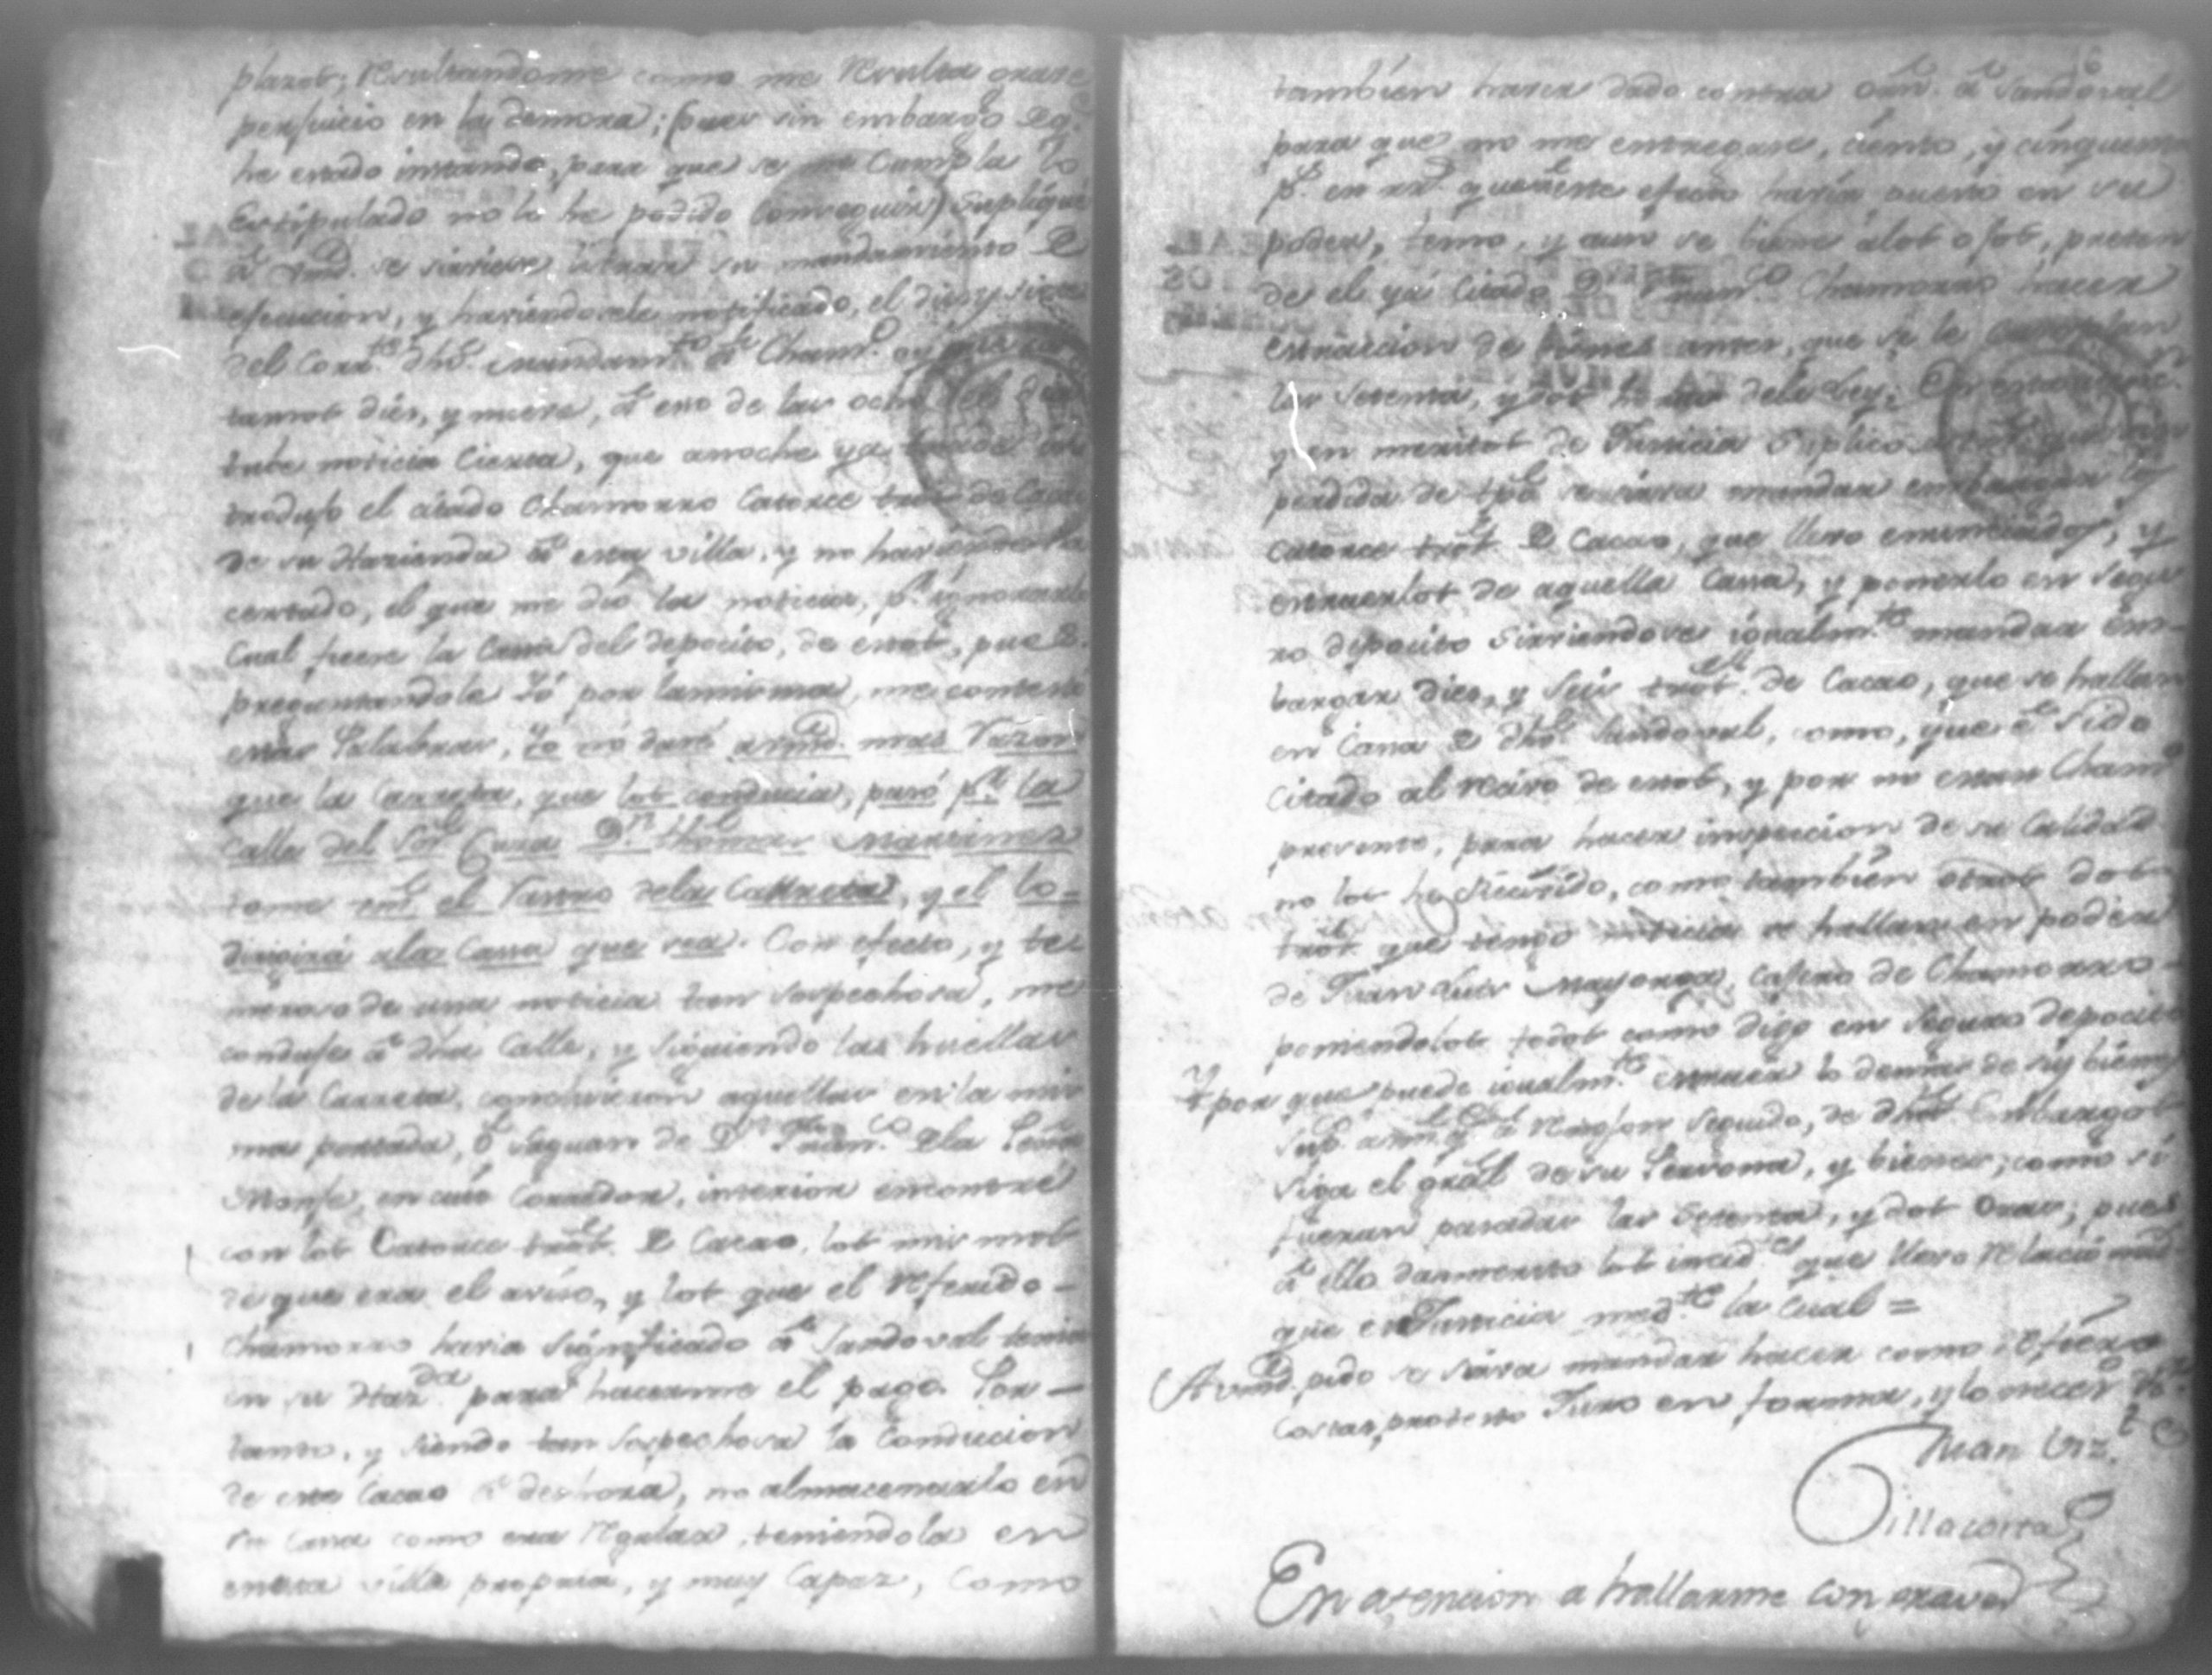 plazos; resultandome como me resulta grave
perjuicio en la demora; (pues sin embargo de q.e
he estado instando, para que se me cumpla lo
Estipulado no lo he podido conseguir) supliqué
â vmd. se sirviese librar su mandamiento de
efecucion, y haviendosele notificado, el dies y siete
del corr.te dho. mandam.to â Cham.o oy
tamos dies, y nueve, â eso de las ocho del dia
tube noticia cierta, que anoche ya
trodujo el citado Chamorro Catorce de Cacao
de su Hazienda â esta villa, y no haviendo
certado, el que me dió la noticia, p.r ignorar
Cual fuese la Casa del deposito, de estos, pues
preguntandole Yó por la misma, me contestó
estas Palabras, Yo no daré a vmd. mas razon
que la Carreta, que los conducia, pasó p.r la
Calle del Sor. Cura D.n Thomas Martines
tome vmd. el rastro dela Carreta, y el lo
dirigirá ala Casa que sea. Con efecto, y te-
meroso de una noticia tan sospechosa, me
conduje â dha Calle, y siguiendo las huellas
de la Carreta, concluieron aquellas en la mis
ma portada, ô saguan de D.n Fran.co dela Peña
Monje, en cuio Corredor, interior encontré
con los Catorce de Cacao, los mis mos
de que era el aviso, y los que el referido
Chamorro havia significado â Sandoval tenia
en su Haz.da para hacerme el pago. Por
tanto, y siendo tan sospechosa la Conducion
de este Cacao â deshora, no almacenarlo en
su Casa como era regular, teniendola en
en esta villa propria, y muy Capaz, como
6
tambien haver dado contra orn. â Sandoval
para que no me entregase, ciento, y cinquenta
p.s en que â este efecto havia puesto en su
poder, temo, y aun se biene alos ojos, preten
de el ya citado D.n Fran.co Chamorro hacer
extraccion de bienes antes, que se le cumplan
las setenta, y dos horas dela Ley;
y en meritos de Justicia suplico
perdida de tpo. se sirva mandar embargar los
catorce de Cacao, que llevo enunciados, y
extraerlos de aquella Casa, y ponerlo en segu
ro deposito sirviendose igualm.te mandar em-
bargar dies, y seis de Cacao, que se hallan
en Casa de dho. Sandoval, como, que ê sido
citado al recivo de estos, y por no estar Cham.o
presente, para hacer inspeccion de su calidad
no los he recivido, como tambien otros dos
que tengo noticia se hallan en poder
de Juan Luis Mayorga, casero de Chamorro
poniendolos todos como digo en seguro deposito
Y por que puede igualm.te extraer lo demas de sus bienes
Sup.co a vmd. q.e â renglon seguido, de dhos. Embargos
siga el gral. de su Persona, y bienes; como si
fueran pasadas las Setenta, y dos Oras; pues
â ello dan merito los incid.es que llevo relacionad
que es Justicia med.te la cual =
A vmd. pido se sirva mandar hacer como refiero
Costas, protesto Juro en forma, y lo neces.o &.a
Juan Viz.te
Villacorta
En atencion a hallarme con graves